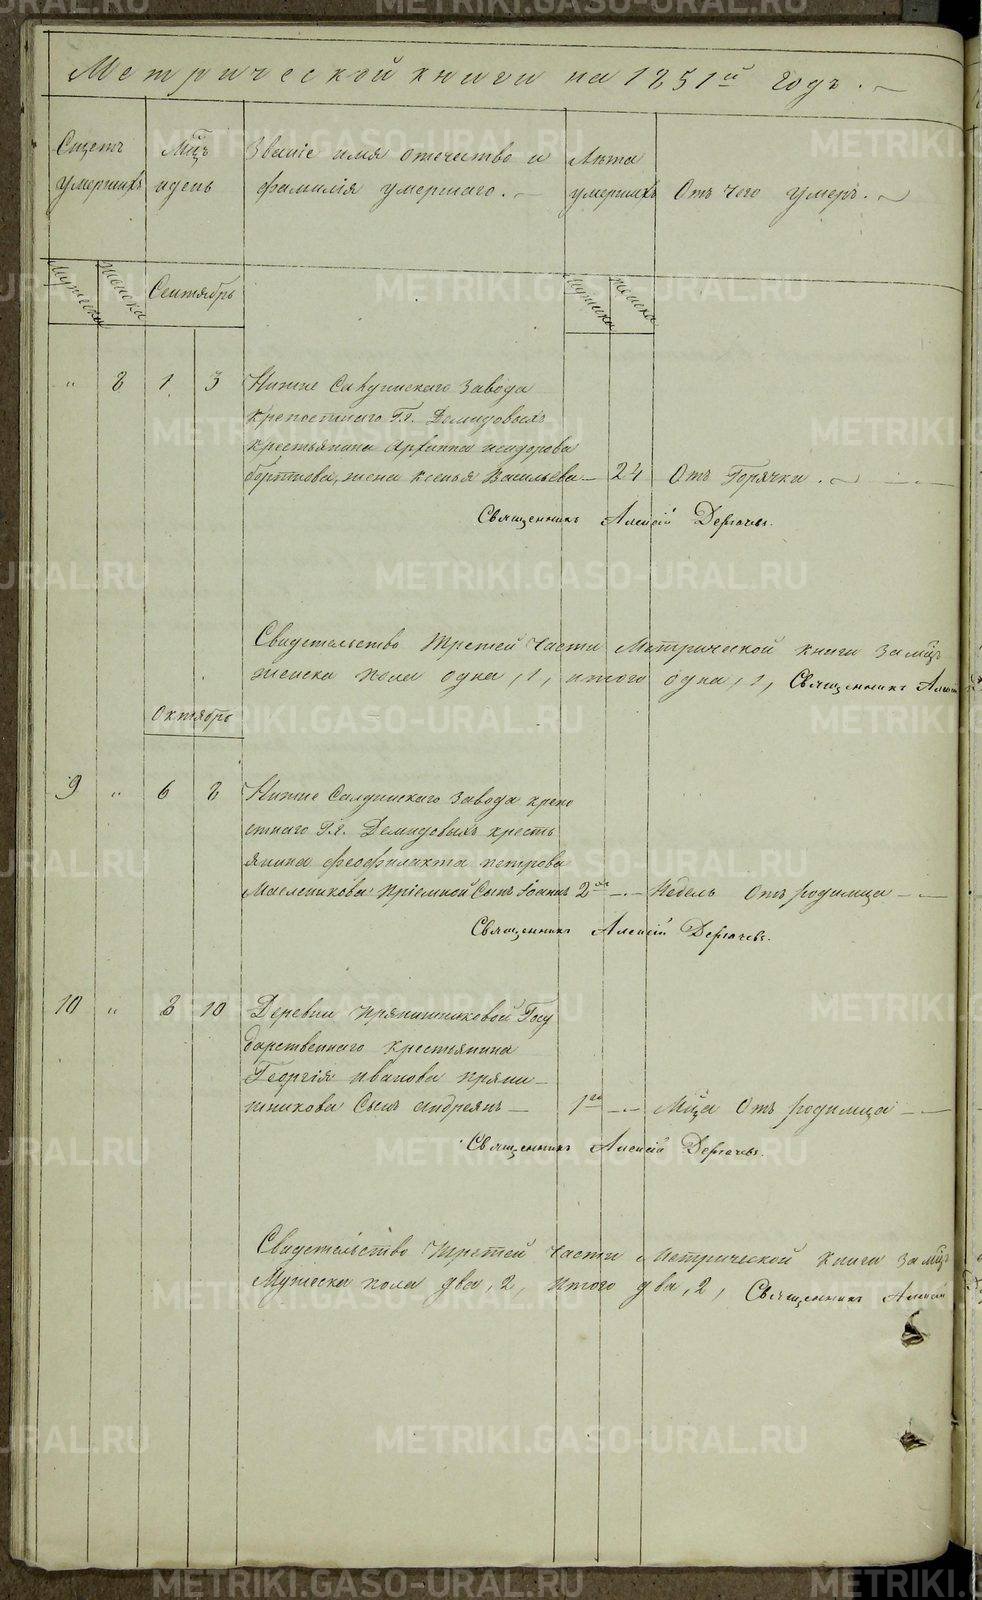 Метрической книги на 1851й годъ.
Счетъ умершихъ
Мцъ и день
Званіе имя отечество и фамилія умершаго.
Лѣта умершихъ
Отъ чего умеръ.
Мужеска
Женска
Сентябрь
Мужеска
Женска
" 8 1 3 Нижне Салдинскаго завода
крепостнаго Гг. Демидовыхъ
крестьянина Архиппа исидорова
жена ксенья Васильева 24 Отъ Горячка.
Священникъ Алексій Дергачевъ.
Свидетельство третей части Метрической книги за мцъ
женска пола одна, 1, итого одна, 1, Священникъ Алексій
Октябрь
9 " 6 8 Нижне Салдинскаго завода крепо
стнаго Гг. Демидовыхъ кресть
янина феофилакта петрова
Масленикова приемной Сынъ Іоаннъ 2хъ Недель Отъ родимца
Священникъ Алексій Дергачевъ.
10 " 8 10 Деревни пряпишниковой Госу
дарственнаго крестьянина
Георгія иванова пряни-
шникова Сынъ андреянъ 1го Мца Отъ родимца
Священникъ Алексій Дергачевъ.
Свидетельство третей части Метрической книги за мцъ
Мужеска пола два, 2, итого два, 2, Священникъ Алексій
METRIKI.GASO-URAL.RU